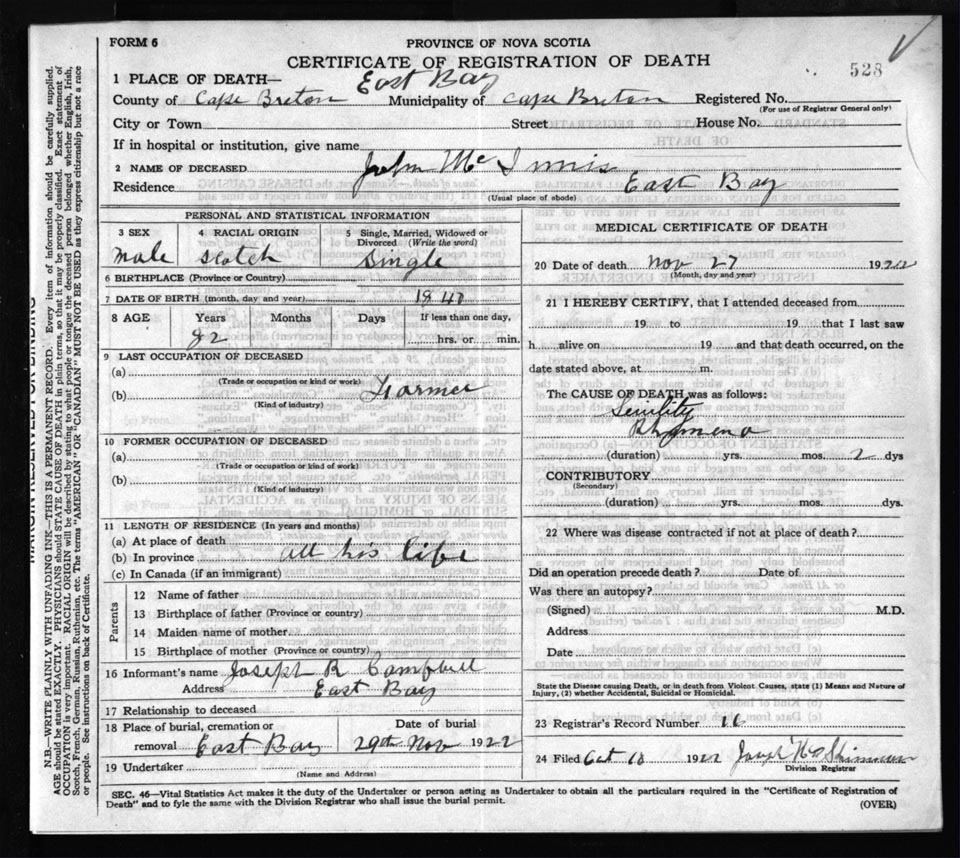 FORM 6
PROVINCE OF NOVA SCOTIA
CERTIFICATE OF REGISTRATION OF DEATH
528
1 PLACE OF DEATH— East Bay
County of Cape Breton Municipality of Cape Breton Registered No.
(For use of Registrar General only)
City or Town Street House No.
If in hospital or institution, give name
2 NAME OF DECEASED John Mc Innis
Residence East Bay
(Usual place of abode)
PERSONAL AND STATISTICAL INFORMATION
3 SEX 4 RACIAL ORIGIN 5 Single, Married, Widowed or Divorced (Write the word)
Male Scotch Single
6 BIRTHPLACE (Province or Country)
7 DATE OF BIRTH (month, day and year) 1840
8 AGE Years Months Days If less than one day,
82 hrs. or min.
9 LAST OCCUPATION OF DECEASED
(a)
(Trade or occupation or kind or work)
(b) Farmer
(Kind of industry)
10 FORMER OCCUPATION OF DECEASED
(a)
(Trade or occupation or kind of work)
(b)
(Kind of industry)
11 LENGTH OF RESIDENCE (In years and months)
(a) At place of death
(b) In province all his life
(c) In Canada (if an immigrant)
Parents
12 Name of father
13 Birthplace of father (Province or country)
14 Maiden name of mother
15 Birthplace of mother (Province or country)
16 Informant's name Joseph R Campbell
Address East Bay
17 Relationship to deceased
18 Place of burial, cremation or Date of burial
removal East Bay 29th Nov 1922
19 Undertaker
(Name and Address)
MEDICAL CERTIFICATE OF DEATH
20 Date of death Nov 27 1922
(Month, day and year)
21 I HEREBY CERTIFY, that I attended deceased from
19 to 19 that I last saw
h alive on 19 and that death occurred, on the
date stated above, at m.
The CAUSE OF DEATH was as follows:
Senility
(duration) yrs. mos. 2 dys
CONTRIBUTORY
(Secondary)
(duration) yrs. mos. dys.
22 Where was disease contracted if not at place of death?
Did an operation precede death? Date of
Was there an autopsy?
(Signed) M.D.
Address
Date
State the Disease causing Death, or in death from Violent Causes, state (1) Means and Nature of
Injury, (2) whether Accidental, Suicidal or Homicidal.
23 Registrar's Record Number
24 Filed 1922 Joseph
Division Registrar
SEC. 46—Vital Statistics Act makes it the duty of the Undertaker or person acting as Undertaker to obtain all the particulars required in the "Certificate of Registration of
Death" and to fyle the same with the Division Registrar who shall issue the burial permit.
(OVER)
MARGIN RESERVED FOR BINDING
N.B.—WRITE PLAINLY WITH UNFADING INK—THIS IS A PERMANENT RECORD. Every item of information should be carefully supplied.
AGE should be stated EXACTLY. PHYSICIANS should STATE CAUSE OF DEATH in plain terms, so that it may be properly classified. Exact statement of
OCCUPATION is very important. RACIAL ORIGIN will be described by stating to what people or tongue the deceased person belonged whether English, Irish,
Scotch, French, German, Russian, Ruthenian, etc. The terms "AMERICAN" OR "CANADIAN" MUST NOT BE USED as they express citizenship but not a race
or people. See instructions on back of Certificate.